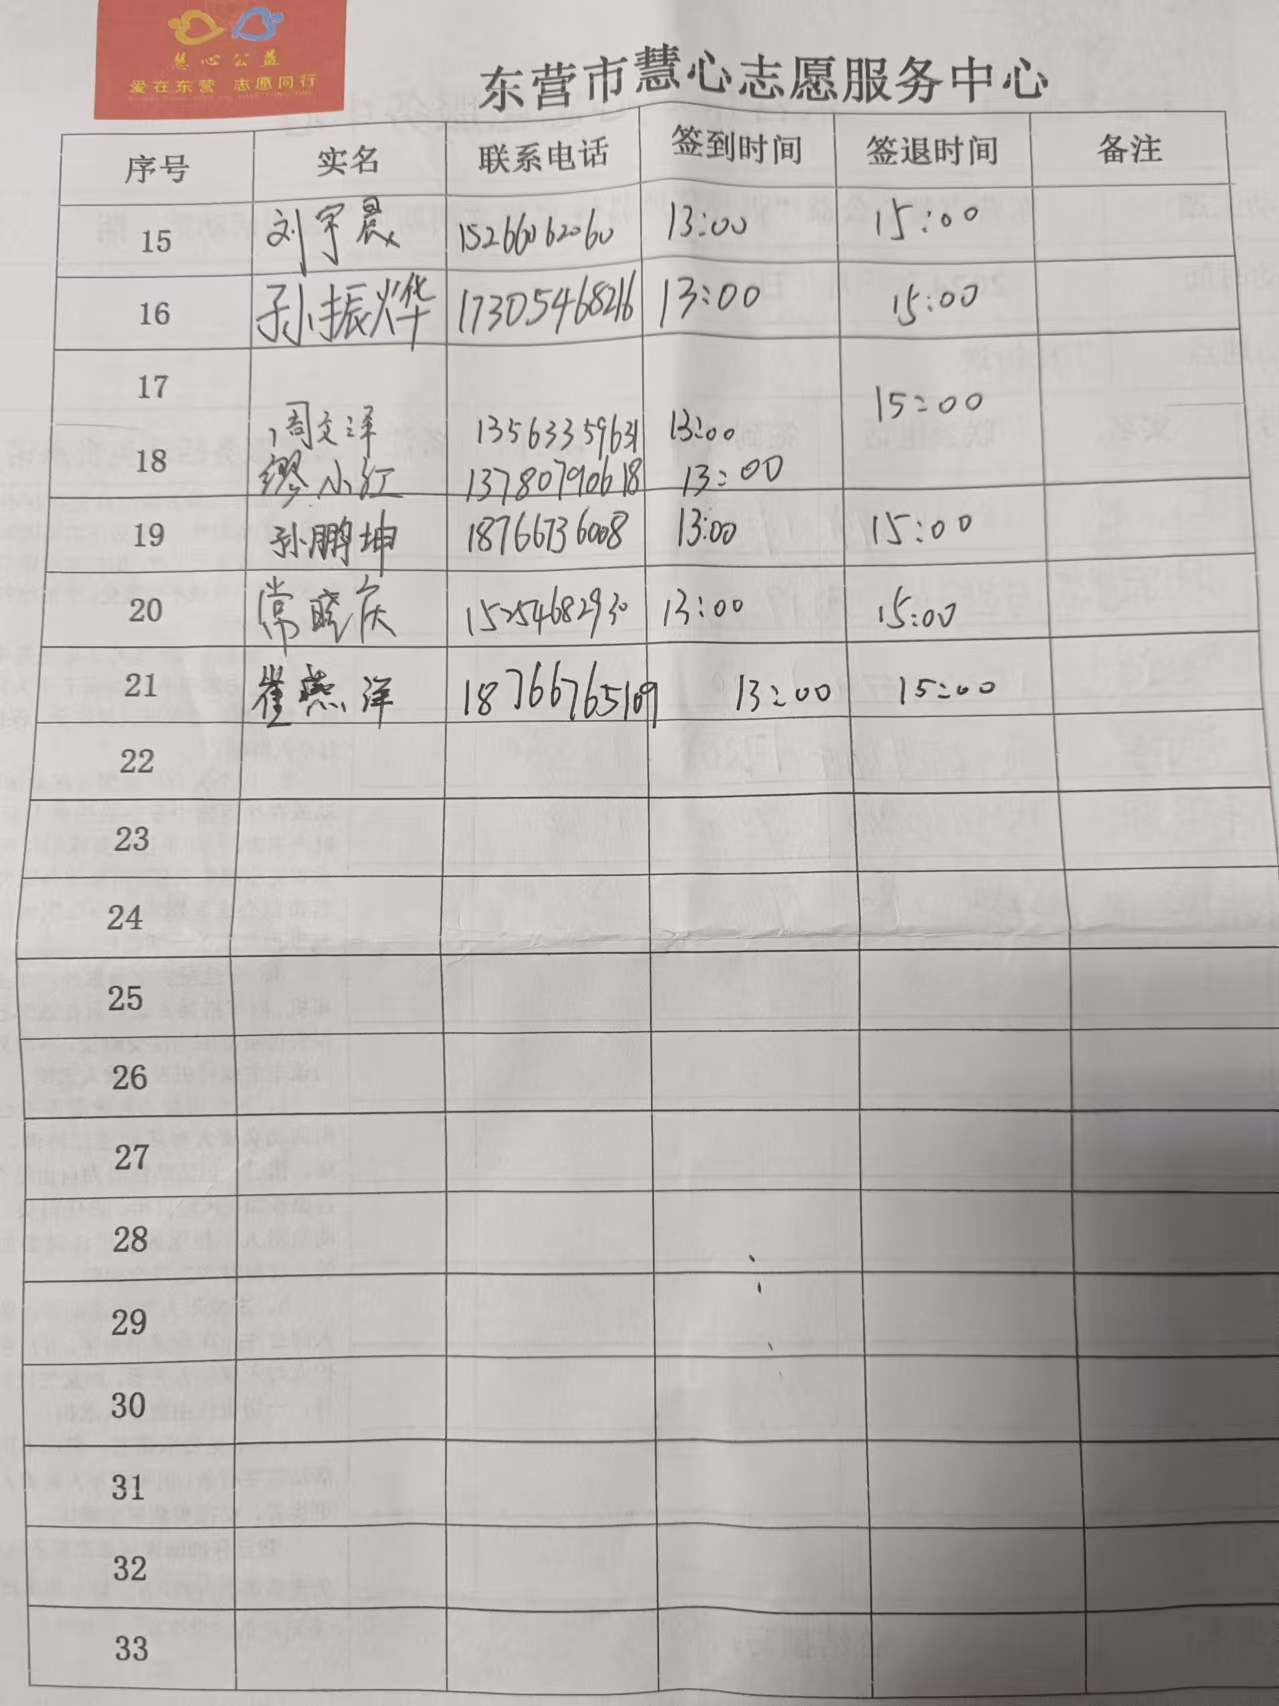 慧心公益
爱在东营 志愿同行
东营市慧心志愿服务中心
序号 实名 联系电话 签到时间 签退时间 备注
15 刘宇晨 15266062060 13:00 15:00
16 孙振烨 17305468216 13:00 15:00
17 周文泽 13563359631 13:00 15:00
18 缪小红 13780790618 13:00
19 孙鹏坤 18766736008 13:00 15:00
20 常晓庆 15254682930 13:00 15:00
21 崔燕洋 18766765109 13:00 15:00
22
23
24
25
26
27
28
29
30
31
32
33